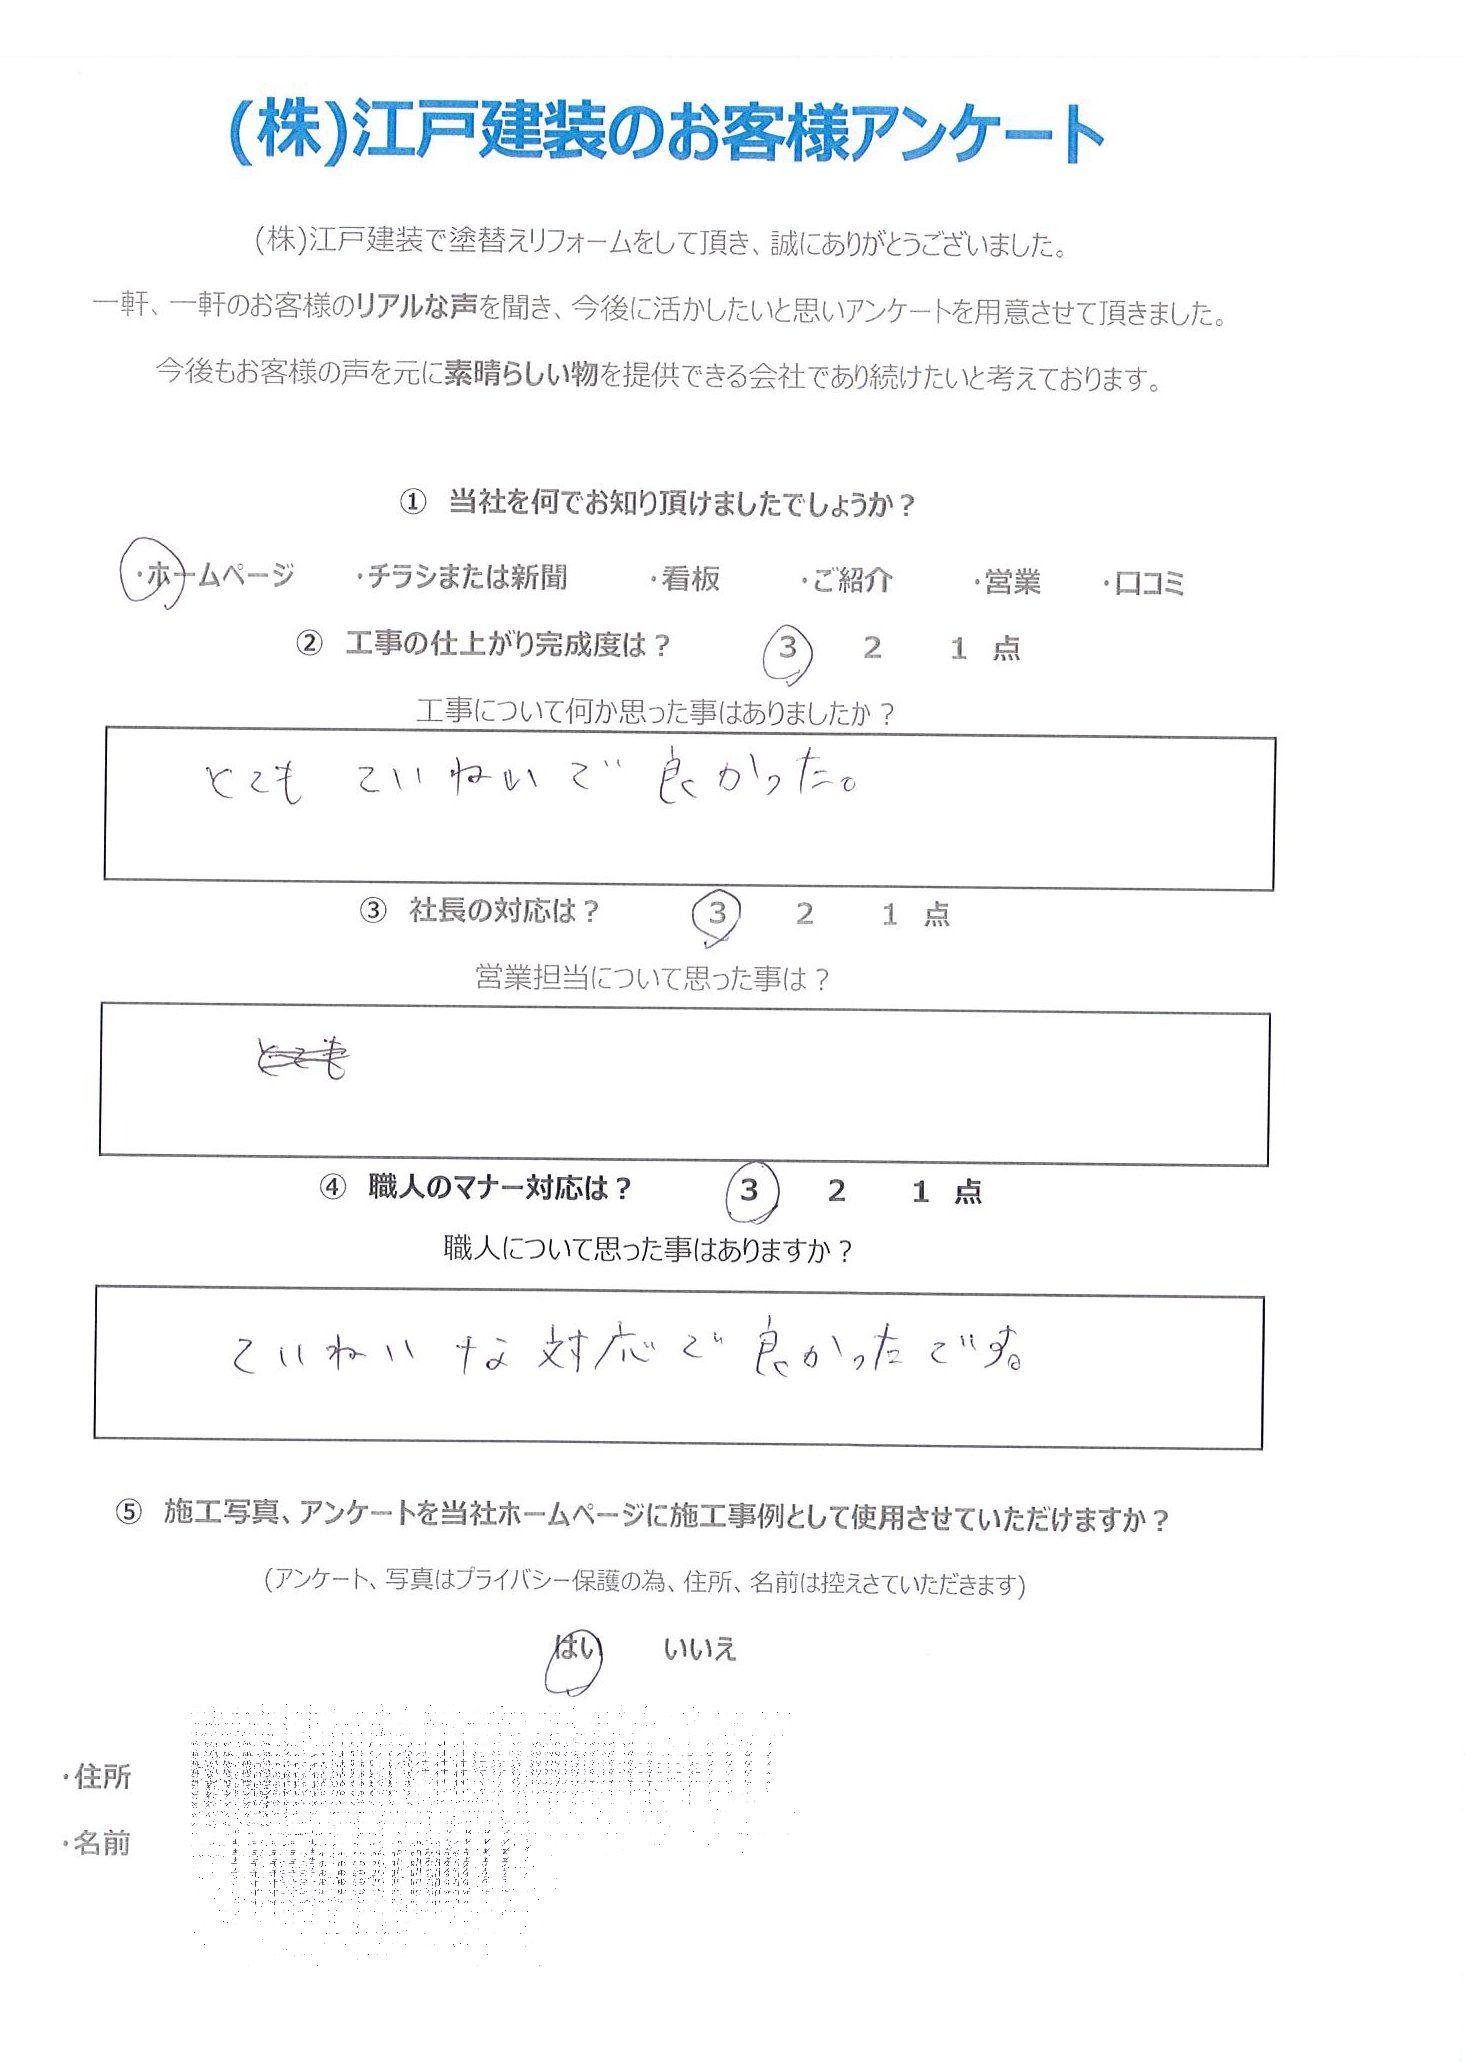 (株)江戸建装のお客様アンケート
(株)江戸建装で塗替えリフォームをして頂き、誠にありがとうございました。
一軒、一軒のお客様のリアルな声を聞き、今後に活かしたいと思いアンケートを用意させて頂きました。
今後もお客様の声を元に素晴らしい物を提供できる会社であり続けたいと考えております。
① 当社を何でお知り頂けましたでしょうか？
・ホームページ ・チラシまたは新聞 ・看板 ・ご紹介 ・営業 ・口コミ
② 工事の仕上がり完成度は？ 3 2 1 点
工事について何か思った事はありましたか？
とても ていねいで 良かった。
③ 社長の対応は？ 3 2 1 点
営業担当について思った事は？
とても
④ 職人のマナー対応は？ 3 2 1 点
職人について思った事はありますか？
ていねいな対応で良かったです。
⑤ 施工写真、アンケートを当社ホームページに施工事例として使用させていただけますか？
(アンケート、写真はプライバシー保護の為、住所、名前は控えさていただきます)
はい いいえ
・住所
・名前